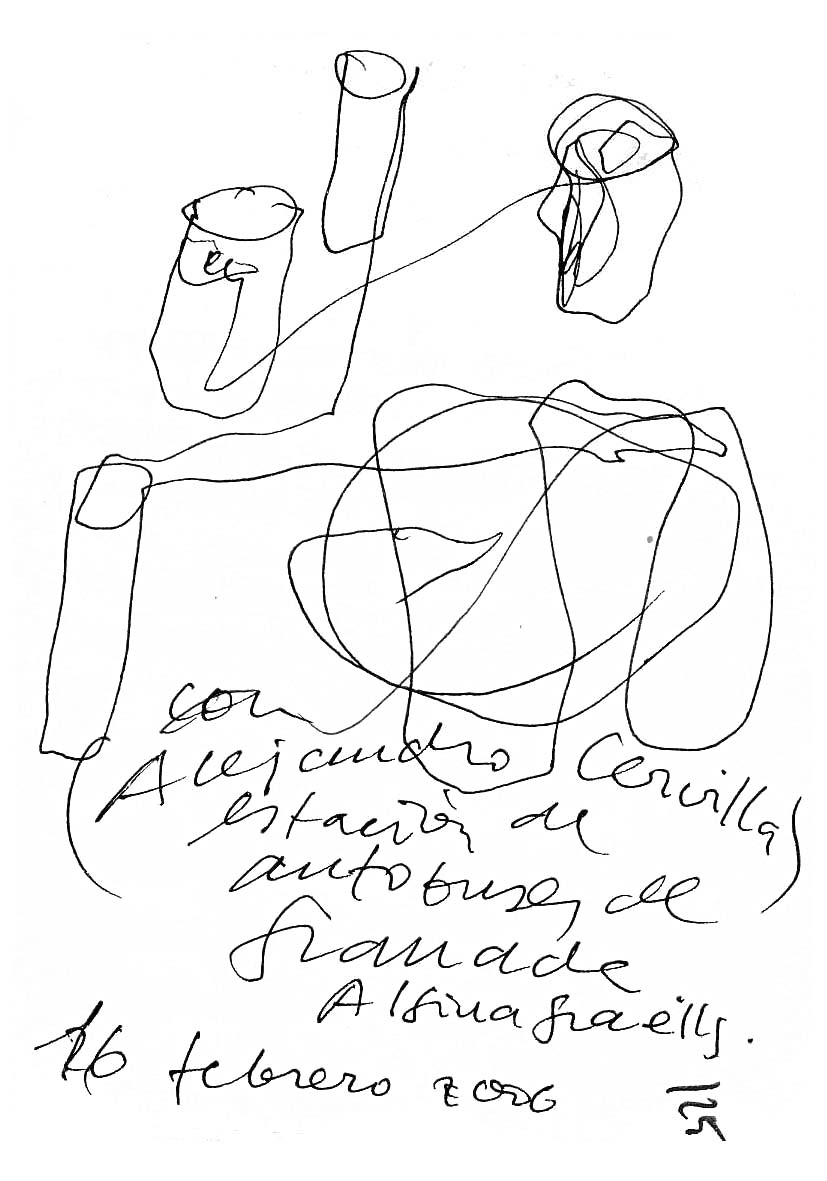 (con
Alejandro Cervilla)
estación de
autobuses de
Granada
Alsina Graells.
16 febrero 2006
125